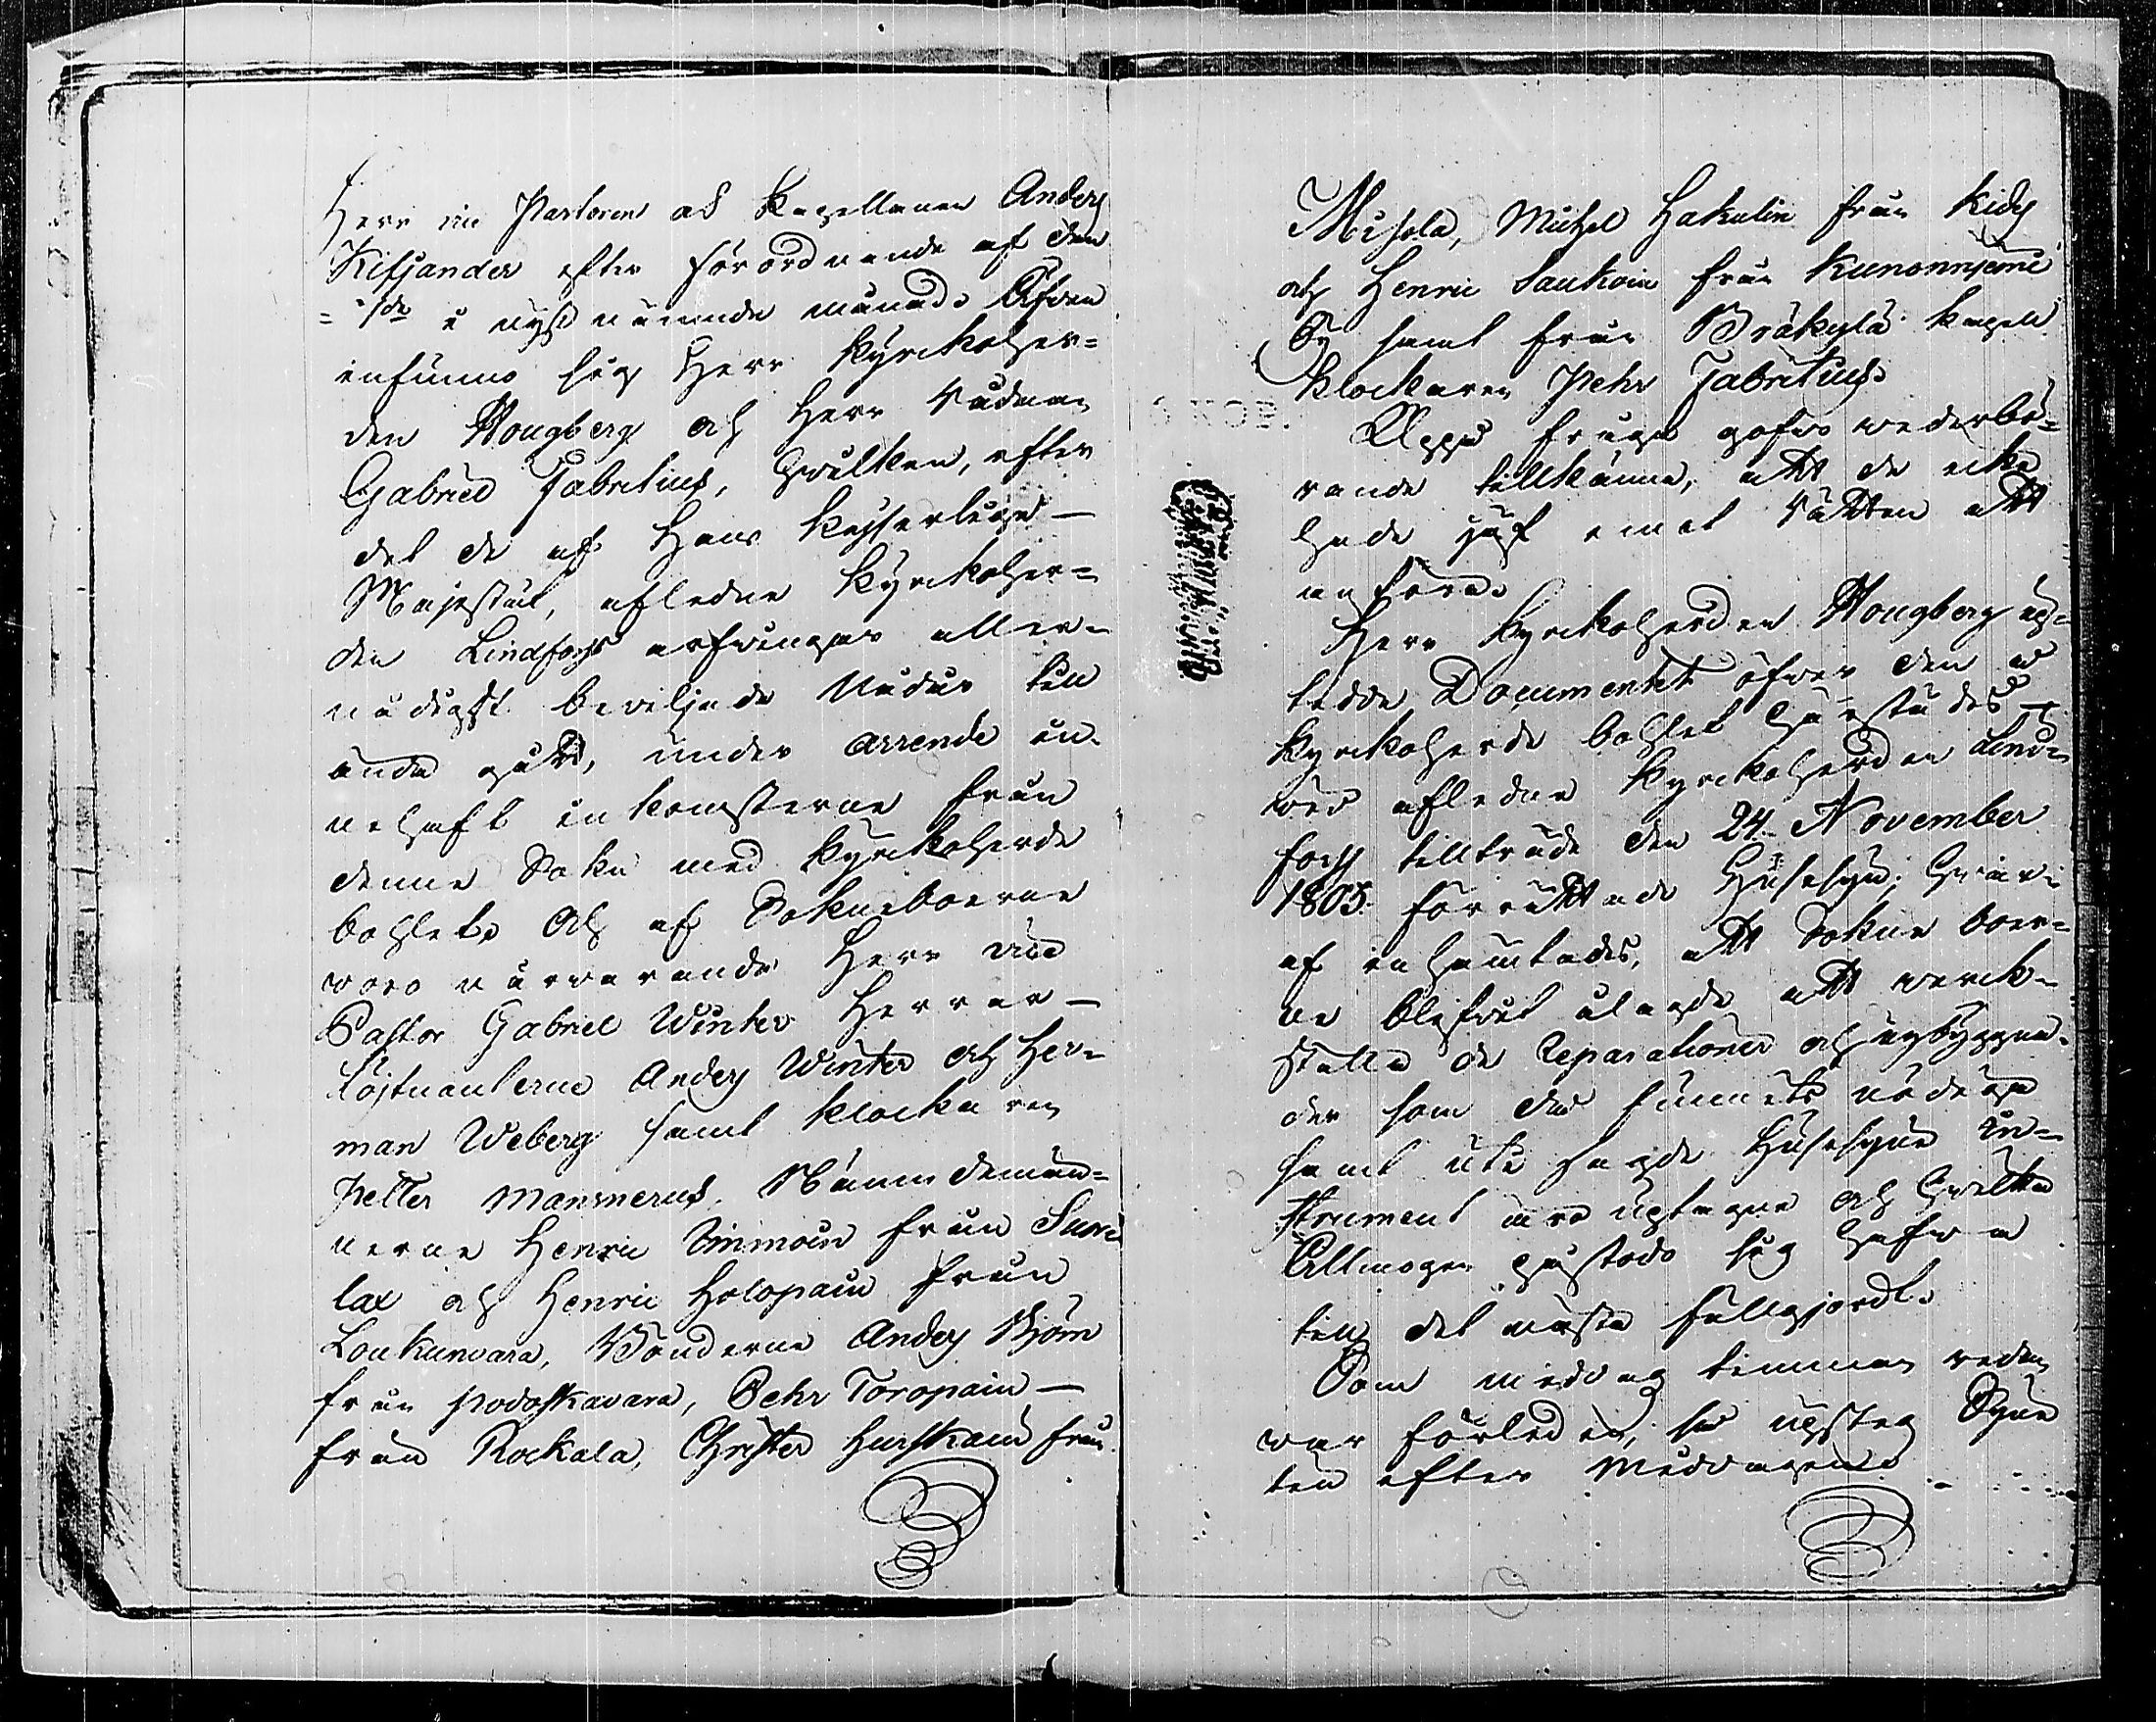 Herr vice Pastoren och Kapellanen Anders
Kitjander efter förordnande af den
i nyst nämnde månad. Äfven
infunno sig Herr Kyrkoher=
den Hougberg och Herr Rådman
Gabriel Fabritius, hvilken, efter
det de af Hans Kejserliga
Majestät, afledne Kyrkoher=
den Lindfors arfvingar aller=
nådigst beviljade Nådår till
ända gått, under arrende in=
nehaft inkomsterne från
denne Sokn med Kyrkoherde
bohlet. Och af Sokneboerne
woro närvarande Herr vice
Pastor Gabriel Winter Herrar
Löjtnanterne Anders Winter och Her=
man Weberg samt klockaren
Petter Mansnerus. Nämndemän=
nerne Henric Simmoin från Suori
lax och Henric Holopain från
Loukunvara, Bönderne Anders Björn
från Podoskavara, Pehr Toropain
från Rockala, Christer Hurskain från
Misola, Michel Hakulin från Kides
och Henric Saukoin från Kunonniemi
By samt från Bräkylä Kapell
Klockaren Pehr Fabritius.
Uppå fråga gofvo wederbö=
rande tillkänna, att de icke
hade jäf emot Rätten att
anföra.
Herr Kyrkoherden Hougberg up=
tedde Documentet öfver den å
Kyrkoherde bohlet härstädes
wid afledne Kyrkoherden Lind=
fors tillträde den 24 November
1805 förrättade Husesyn; hvar=
af inhämtades, att Sokne boer=
ne blifvit ålagde att werck=
ställa de Reparationer och nybyggna=
der som då funnits nödiga
samt uti sagde Husesyns In=
strument äro uptagne och hvilka
Allmogen påstod sig hafva
till det mesta fullgjordt.
Som middags timman redan
war förleden, så upsteg Syne
ten efter middagen